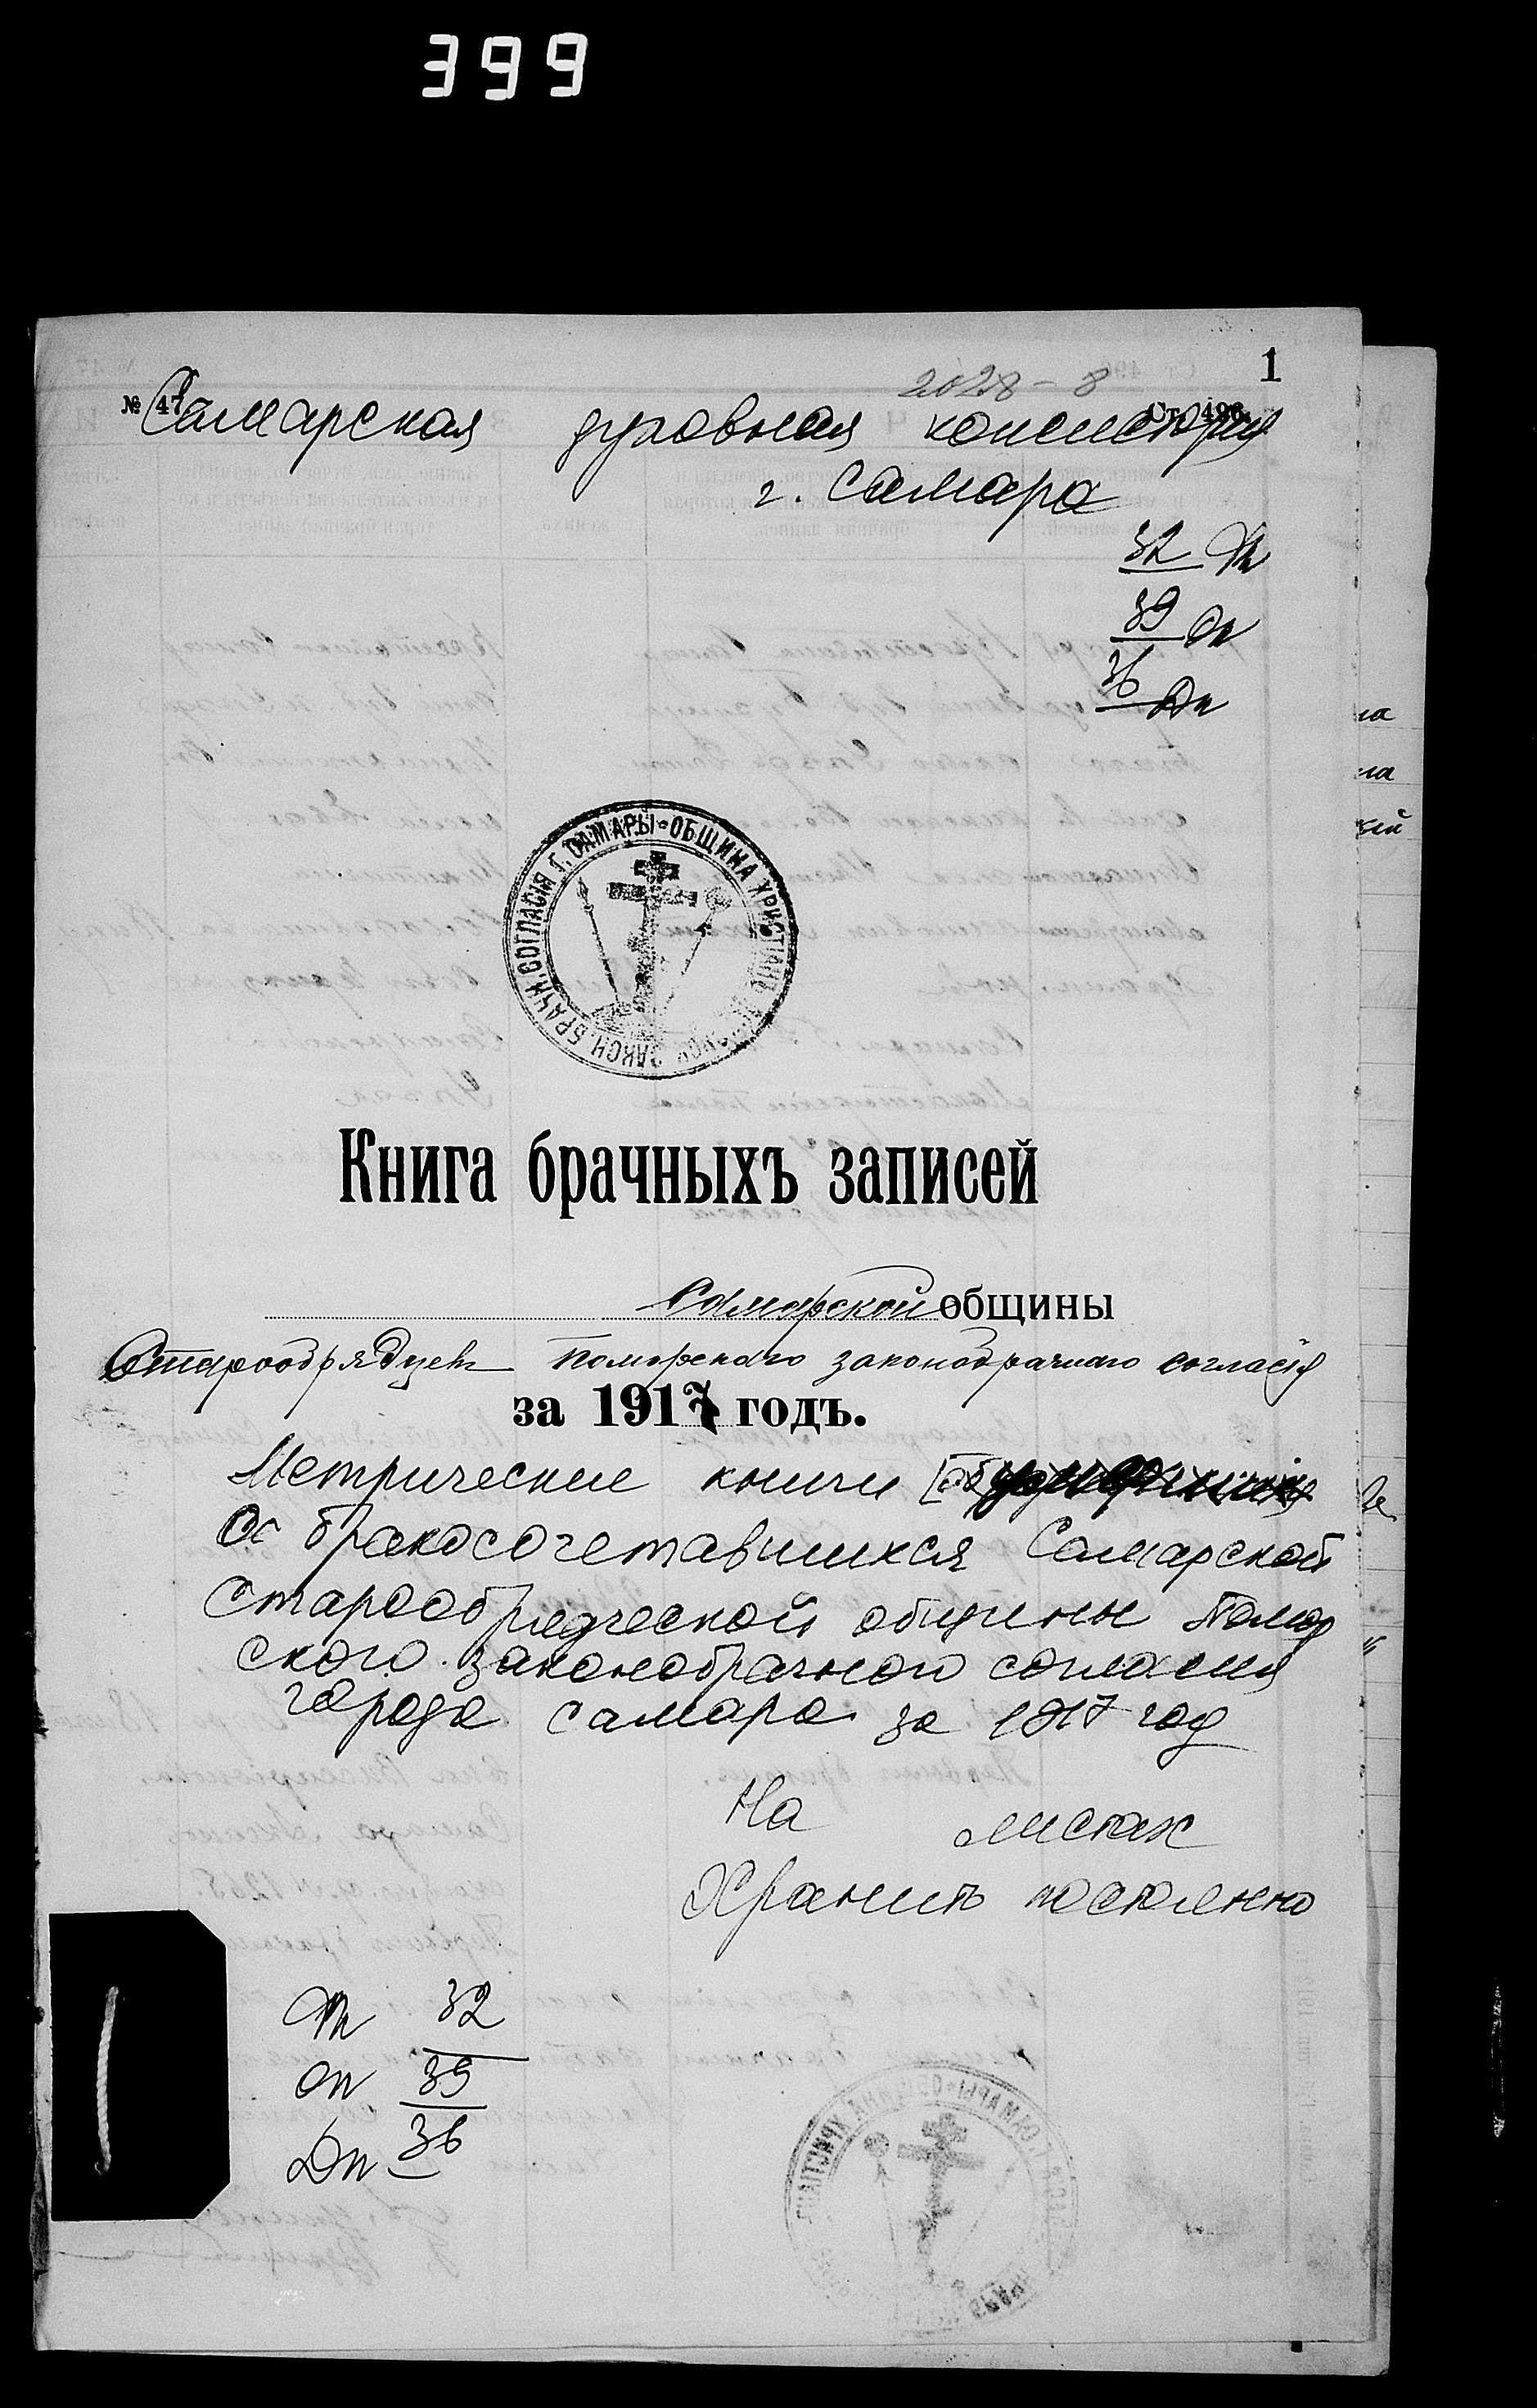 399
1
2028-8
№ 47
Ст. 496
Самарская духовная консистория
г. Самара
32
39
36
Г. САМАРЫ=ОБЩИНА ХРИСТІАНЪ ЗАКОН. БРАЧН. СОГЛАСІЯ
Книга брачныхъ записей
Самарской общины
Старообрядцевъ Поморскаго законобрачнаго согласія
за 1917 годъ.
Метрические книги
О бракосочетавшихся Самарской
старообрядческой общины Помор
ского законобрачного согласия
города Самара за 1917 год
На листах
Хранить постоянно
32
Оп 39
Дп 36